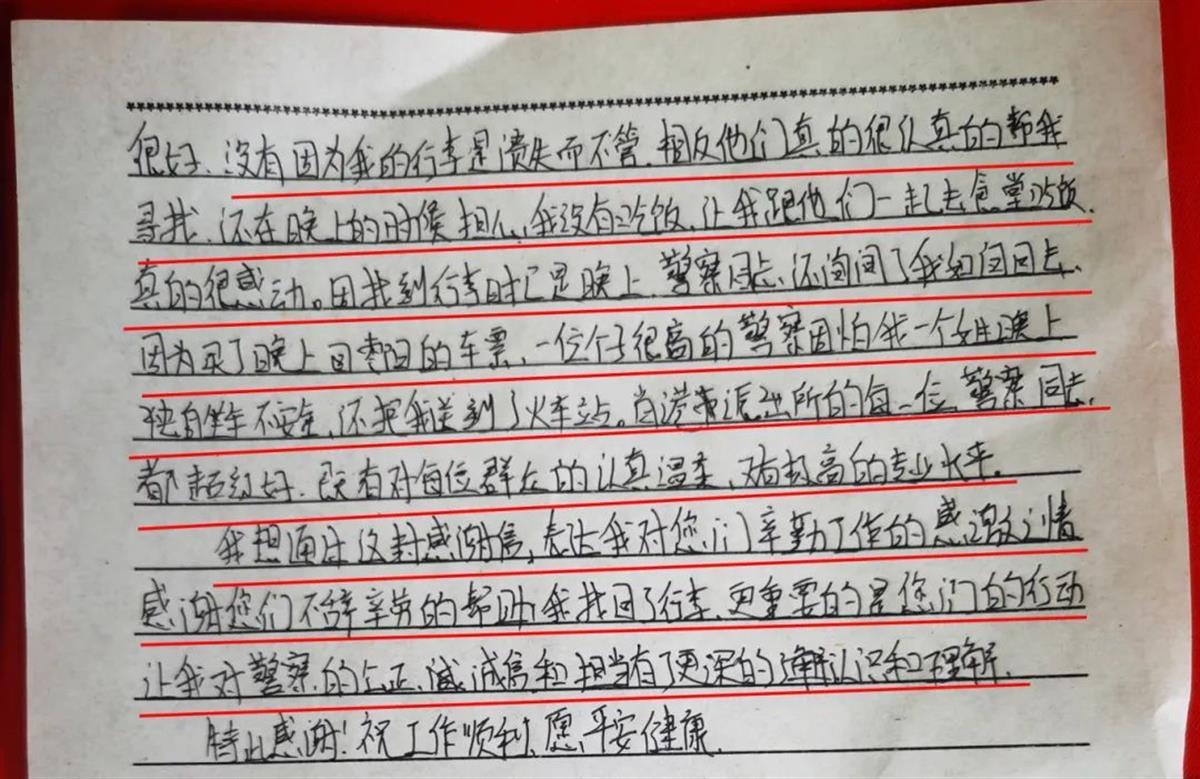 很好、没有因为我的行李是遗失而不管.相反他们真的很认真的帮我
寻找、还在晚上的时候担心我没有吃饭,让我跟他们一起去食堂吃饭.
真的很感动。因找到行李时已是晚上.警察同志、还询问了我如何回去.
因为买了晚上回枣阳的车票、一位个子很高的警察因怕我一个女生晚上
独自坐车不安全,还把我送到了火车站。肖港 派出所的每一位警察同志.
都超级好、既有对每位群众的认真温柔、又有极高的专业水平.
我想通过这封感谢信,表达我对您们辛勤工作的感激之情
感谢您们不辞辛劳的帮助我找回了行李、更重要的是您们的行动
让我对警察的公正、诚信和担当有了更深的 认识和理解.
特此感谢!祝工作顺利、愿平安健康.